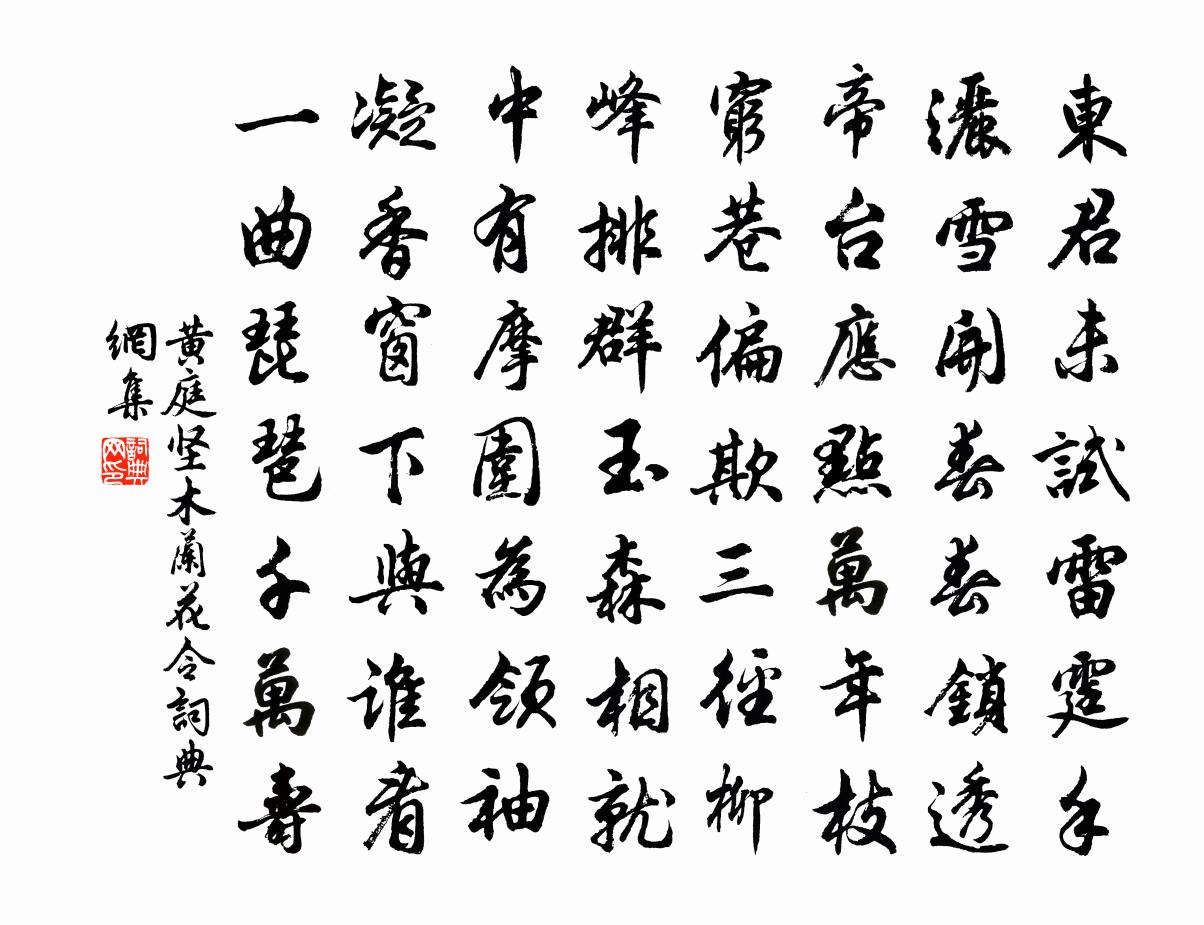 東君未試雷霆手
灑雪開春春鎖透
帝台應點萬年枝
窮巷偏欺三徑柳
峰排群玉森相就
中有摩圍為領袖
凝香窗下與誰看
一曲琵琶千萬壽
黄庭坚木蘭花令詞典
網集
詞典
网印